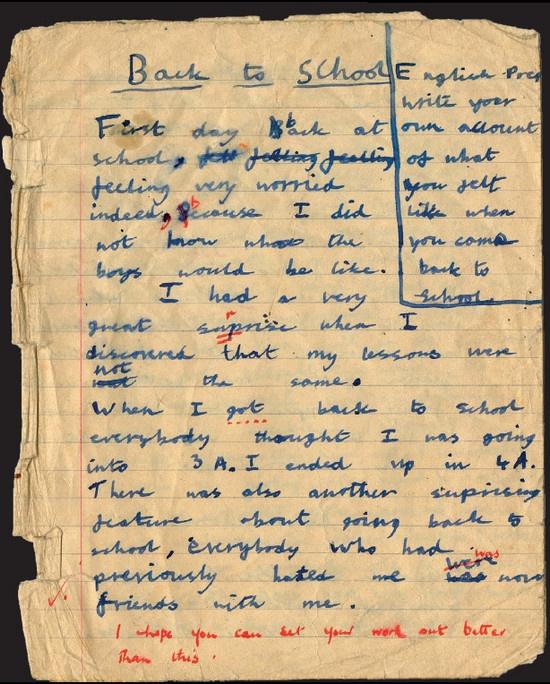 Back to School
English Prep
Write your
own account
of what
you felt
like when
you come
back to
school.
First day back at
school, felt felling feelling
feeling very worried
indeed, because I did
not know what the
boys would be like.
I had a very
great suprise when I
discovered that my lessons were
not
not the same.
When I got back to school
everybody thought I was going
into 3 A. I ended up in 4 A.
There was also another suprising
feature about going back to
school, everybody who had
was
were
previously hated me was now
friends with me.
I hope you can set your work out better
than this.